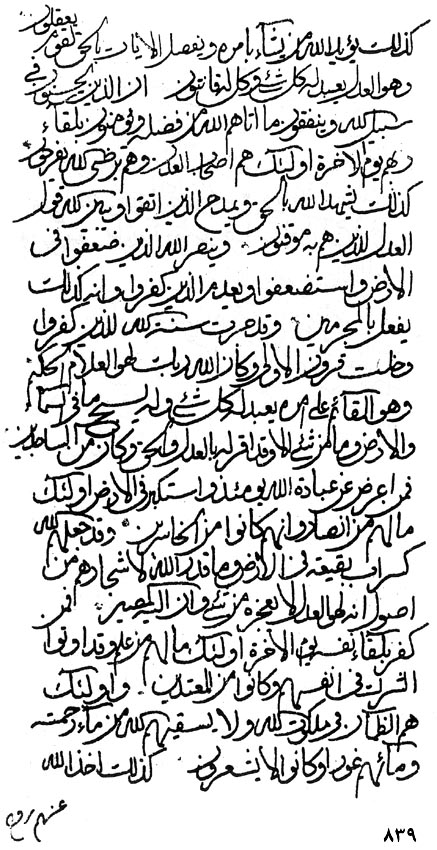 يعقلون
كذلك يؤيد الله من يشاء بامره ويفصل الايات بالحق لقوم
وهو العدل يعبد له كل شئ وكل له قانتون ان الذين يحسنون في
سبيل الله وينفقون ما اتاهم الله من فضله ويؤمنون بلقاء
ربهم يوم الاخرة اولئك هم اصحاب العدل وهم برضى الله يفرحون
كذلك يشهد الله بالحق ويمدح الذين اتقوا ويبين الله قول
العدل للذين هم به موقنون وينصر الله الذين ضعفوا فى
الارض واستضعفوا ويعدم الذين كفروا وانه كذلك
يفعل بالمجرمين وقد جرت سنة الله للذين كفروا
وخلت قرون الاولى وكان الله ربك لهو العلام الحكيم
وهو القائم على امره يعبد له كل شئ وله يسبح ما فى السماء
والارض وما من شئ الا وقد اقر له بالعدل والحق وكان من الساجدين
فمن اعرض عن عبادة الله يومئذ واستكبر فى الارض اولئك
ما لهم من انصار وانهم كانوا من الخاسرين وقد جعلهم الله
كسراب بقيعة فى الارض وما قدر الله لاشجارهم من
اصول انه لهو العدل لا يعجزه من شئ وان اليه يصير فمن
كفر بلقائه فى الاخرة اولئك ما لهم من علم وقد اوتوا
الشرك فى انفسهم وكانوا من المعتدين واولئك
هم الظمآن فى ملكوت الله ولا يسقيهم الله من ماء رحمته
ومائهم غورا وكانوا لا يشعرون كذلك اخذ الله
عنهم روح
٨٣٩